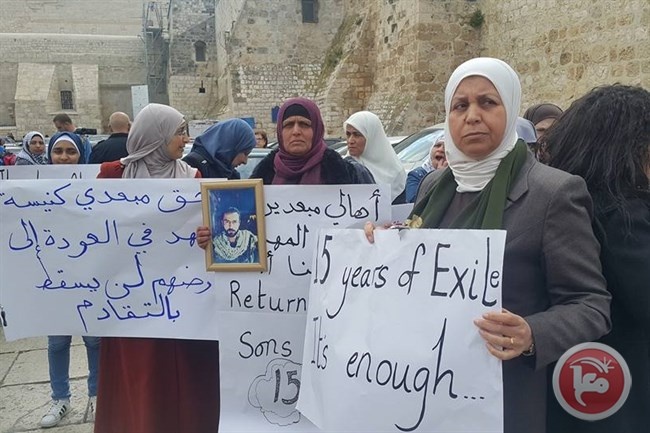 حق مبعدي كنيسة
المهد في العودة إلى
أرضهم لن يسقط
بالتقادم
أهالي مبعدي
المهد
Return
Sons
15
15 years of Exile
It's enough...
معا